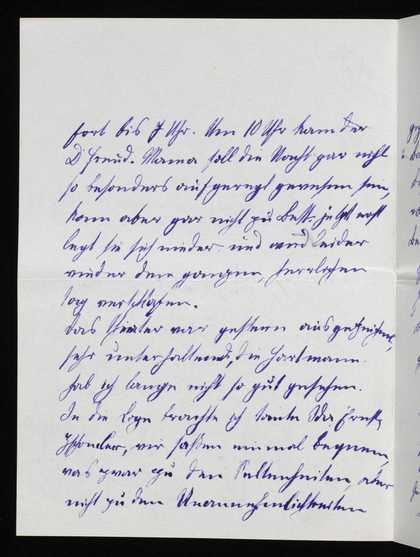 fort bis 7 Uhr. Um 10 Uhr kam der
D Freud. Mama soll die Nacht gar nicht
so besonders aufgeregt gewesen sein,
kam aber gar nicht zu Bett. jetzt erst
legt sie sich nieder und wird leider
wieder den ganzen, herrlichen
Tag verschlafen.
Das Theater war gestern ausgezeichnet,
sehr unterhaltend, die Hartmann
hab ich lange nicht so gut gesehen.
In die Loge brachte ich Tante Ida, Ernst,
wir saßen einmal bequem,
was zwar zu den Seltenheiten, aber
nicht zu den Unannehmlichkeiten